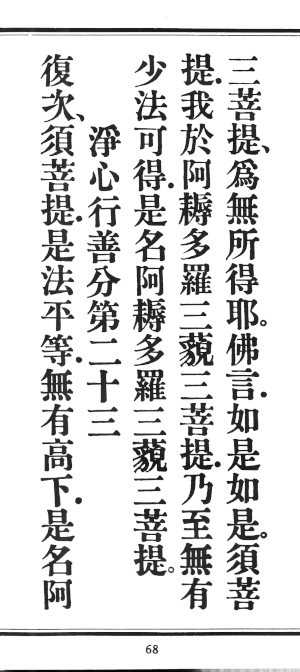 三菩提、為無所得耶。佛言.如是如是。須菩
提.我於阿耨多羅三藐三菩提.乃至無有
少法可得.是名阿耨多羅三藐三菩提。
淨心行善分第二十三
復次、須菩提.是法平等.無有高下.是名阿
68